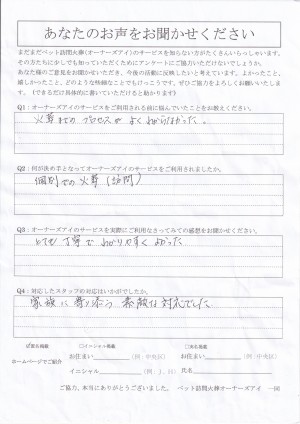 あなたのお声をお聞かせください
まだまだペット訪問火葬(オーナーズアイ)のサービスを知らない方がたくさんいらっしゃいます。
その方たちに少しでも知っていただくためにアンケートにご協力いただけないでしょうか。
あなた様のご意見をお聞かせいただき、今後の活動に反映したいと考えています。よかったこと、
嬉しかったこと、どのような些細なことでもけっこうです。ぜひご協力をよろしくお願いいたします。
(できるだけ具体的に書いていただけると助かります)
Q1：オーナーズアイのサービスをご利用される前に悩んでいたことをお教えください。
火葬までのプロセスがよくわからなかった。
Q2：何が決め手となってオーナーズアイのサービスをご利用されましたか。
個別での火葬(訪問)
Q3：オーナーズアイのサービスを実際にご利用なさってみての感想をお聞かせください。
とても丁寧でわかりやすくよかった
Q4：対応したスタッフの対応はいかがでしたか。
家族に寄り添う素敵な対応でした
匿名掲載 □イニシャル掲載 □実名掲載
ホームページでご紹介
お住まい (例：中央区) お住まい (例：中央区)
イニシャル (例：J．H) 氏名
ご協力、本当にありがとうございました。 ペット訪問火葬オーナーズアイ 一同